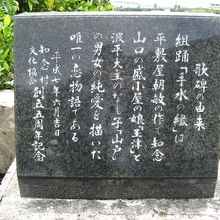 歌碑の由来
組踊「手水の縁」は
平敷屋朝敏の作、知念
山口の盛小屋の娘「玉津」と
波平大主のかし子「山戸」
の男女の純愛を描いた
唯一の恋物語である
平成 年六月吉日
知念村
文化協会創立五周年記念